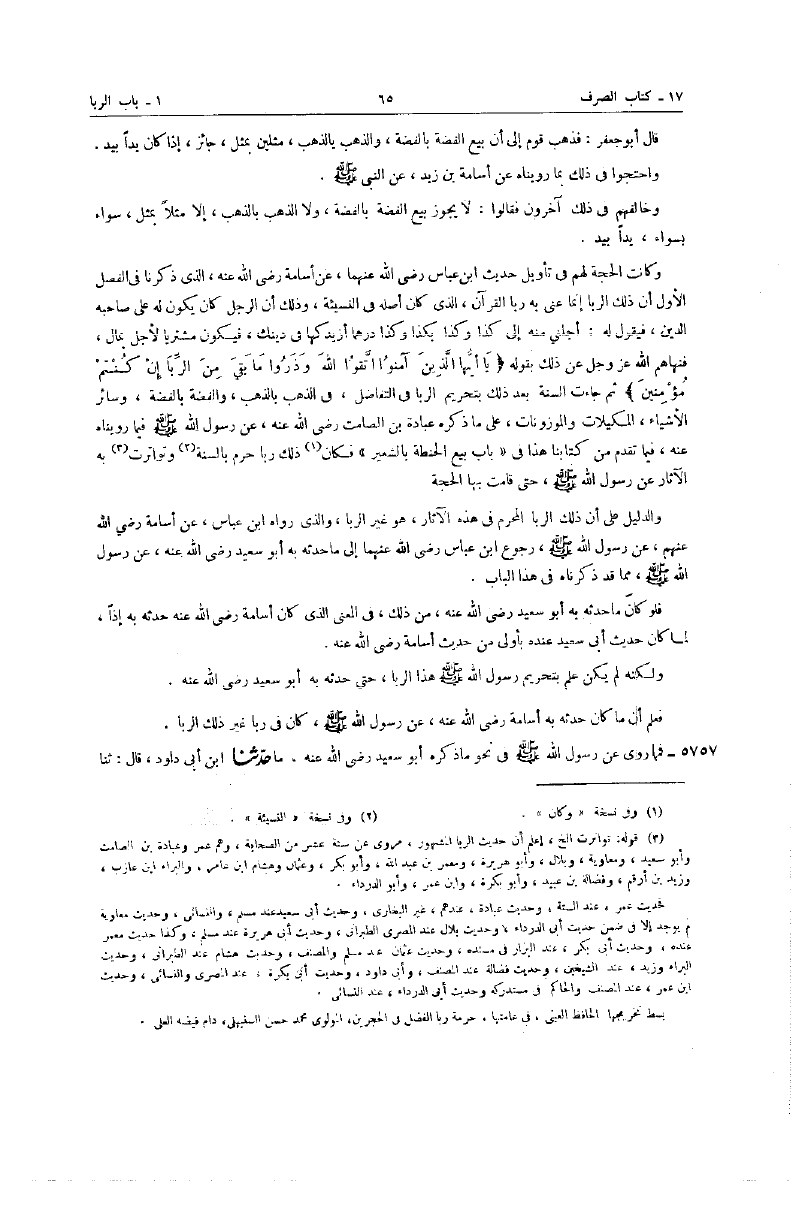 ١٧ - كتاب الصرف ٦٥ ١ - باب الربا
قال أبو جعفر : فذهب قوم إلى أن بيع الفضة بالفضة ، والذهب بالذهب ، مثلين بمثل ، جائز ، إذا كان يداً بيد .
واحتجوا فى ذلك بما رويناه عن أسامة بن زيد ، عن النبى ﷺ .
وخالفهم فى ذلك آخرون فقالوا : لا يجوز بيع الفضة بالفضة ، ولا الذهب بالذهب ، إلا مثلاً بمثل ، سواء
بسواء ، يداً بيد .
وكانت الحجة لهم فى تأويل حديث ابن عباس رضى الله عنهما ، عن أسامة رضى الله عنه ، الذى ذكرنا فى الفصل
الأول أن ذلك الربا إنما عنى به ربا القرآن ، الذى كان أصله فى النسيئة ، وذلك أن الرجل كان يكون له على صاحبه
الدين ، فيقول له : أجلنى منه إلى كذا وكذا بكذا وكذا درهما أزيدكها فى دينك ، فيكون مشتريا لأجل بمال ،
فنهاهم الله عز وجل عن ذلك بقوله ﴿ يَا أَيُّهَا الَّذِينَ آمَنُوا اتَّقُوا اللهَ وَذَرُوا مَا بَقِيَ مِنَ الرِّبَا إِنْ كُنْتُمْ
مُؤْمِنِينَ ﴾ ثم جاءت السنة بعد ذلك بتحريم الربا فى التفاضل ، فى الذهب بالذهب ، والفضة بالفضة ، وسائر
الأشياء ، المكيلات والموزونات ، على ما ذكره عبادة بن الصامت رضى الله عنه ، عن رسول الله ﷺ فيما رويناه
عنه ، فيما تقدم من كتابنا هذا فى « باب بيع الحنطة بالشعير » فكان(١) ذلك ربا حرم بالسنة(٢) وتواترت(٣) به
الآثار عن رسول الله ﷺ ، حتى قامت بها الحجة
والدليل على أن ذلك الربا المحرم فى هذه الآثار ، هو غير الربا ، والذى رواه ابن عباس ، عن أسامة رضي الله
عنهم ، عن رسول الله ﷺ ، رجوع ابن عباس رضى الله عنهما إلى ما حدثه به أبو سعيد رضى الله عنه ، عن رسول
الله ﷺ ، مما قد ذكرناه فى هذا الباب .
فلو كان ما حدثه به أبو سعيد رضى الله عنه ، من ذلك ، فى المعنى الذى كان أسامة رضى الله عنه حدثه به إذاً ،
لما كان حديث أبى سعيد عنده بأولى من حديث أسامة رضى الله عنه .
ولكنه لم يكن علم بتحريم رسول الله ﷺ هذا الربا ، حتى حدثه به أبو سعيد رضى الله عنه .
فعلم أن ما كان حدثه به أسامة رضى الله عنه ، عن رسول الله ﷺ ، كان فى ربا غير ذلك الربا .
٥٧٥٧ - فما روى عن رسول الله ﷺ فى نحو ما ذكره أبو سعيد رضى الله عنه . ما حدّثنا ابن أبى داود ، قال : ثنا
(١) وفى نسخة « وكان » . (٢) وفى نسخة « النسيئة » .
(٣) قوله: تواترت الخ ، إعلم أن حديث الربا المشهور ، مروى عن ستة عشر من الصحابة ، وهم عمر وعبادة بن الصامت
وأبو سعيد ، ومعاوية ، وبلال ، وأبو هريرة ، ومعمر بن عبد الله ، وأبو بكر ، وعثمان وهشام ابن عامر ، والبراء ابن عازب ،
وزيد بن أرقم ، وفضالة بن عبيد ، وأبو بكرة ، وابن عمر ، وأبو الدرداء .
فحديث عمر ، عند الستة ، وحديث عبادة ، عندهم ، غير البخارى ، وحديث أبى سعيد عند مسلم ، والنسائى ، وحديث معاوية
لم يوجد إلا فى ضمن حديث أبى الدرداء ، وحديث بلال عند المصرى الطبرانى ، وحديث أبى هريرة عند مسلم ، وكذا حديث معمر
عنده ، وحديث أبى بكر ، عند البزار فى مسنده ، وحديث عثمان عند مسلم والمصنف ، وحديث هشام عند الطبرانى ، وحديث
البراء وزيد ، عند الشيخين ، وحديث فضالة عند المصنف ، وأبى داود ، وحديث أبى بكرة ، عند المصرى والنسائى ، وحديث
ابن عمر ، عند المصنف والحاكم فى مستدركه وحديث أبى الدرداء ، عند النسائى .
بسط تخريجها الحافظ العينى ، فى عامتها . حرمة ربا الفضل فى الحجرين، المولوى محمد حسن السنبهلى، دام فيضه العلى .